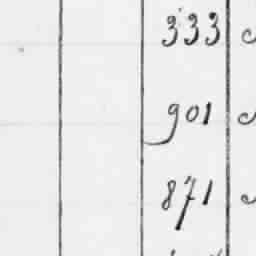 333
901
871